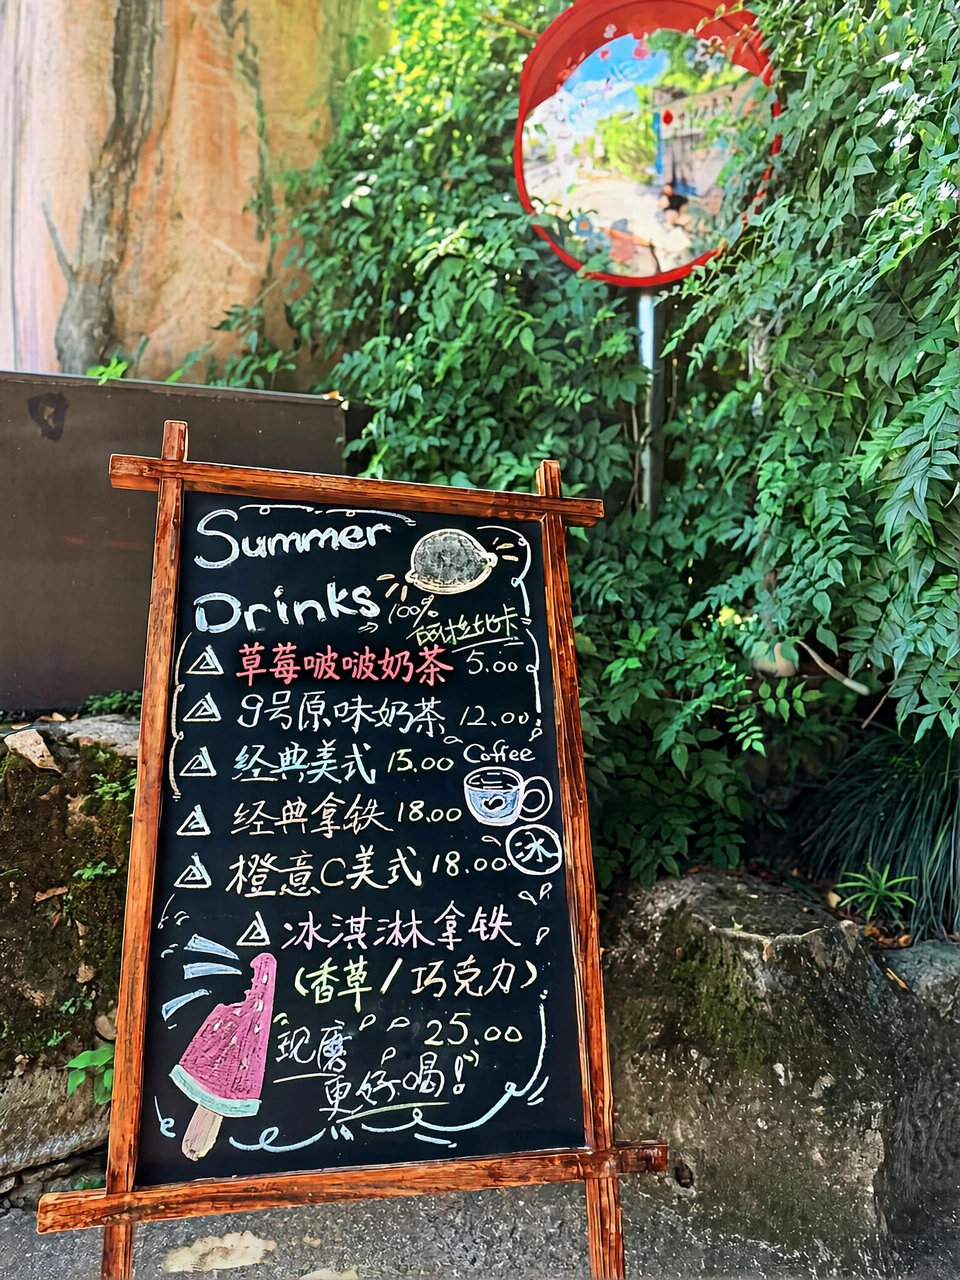 Summer
Drinks
100%
阿拉比卡
草莓啵啵奶茶 5.00
9号原味奶茶 12.00
Coffee
经典美式 15.00
经典拿铁 18.00
冰
橙意C美式 18.00
冰淇淋拿铁
(香草/巧克力)
25.00
现磨
更好喝!